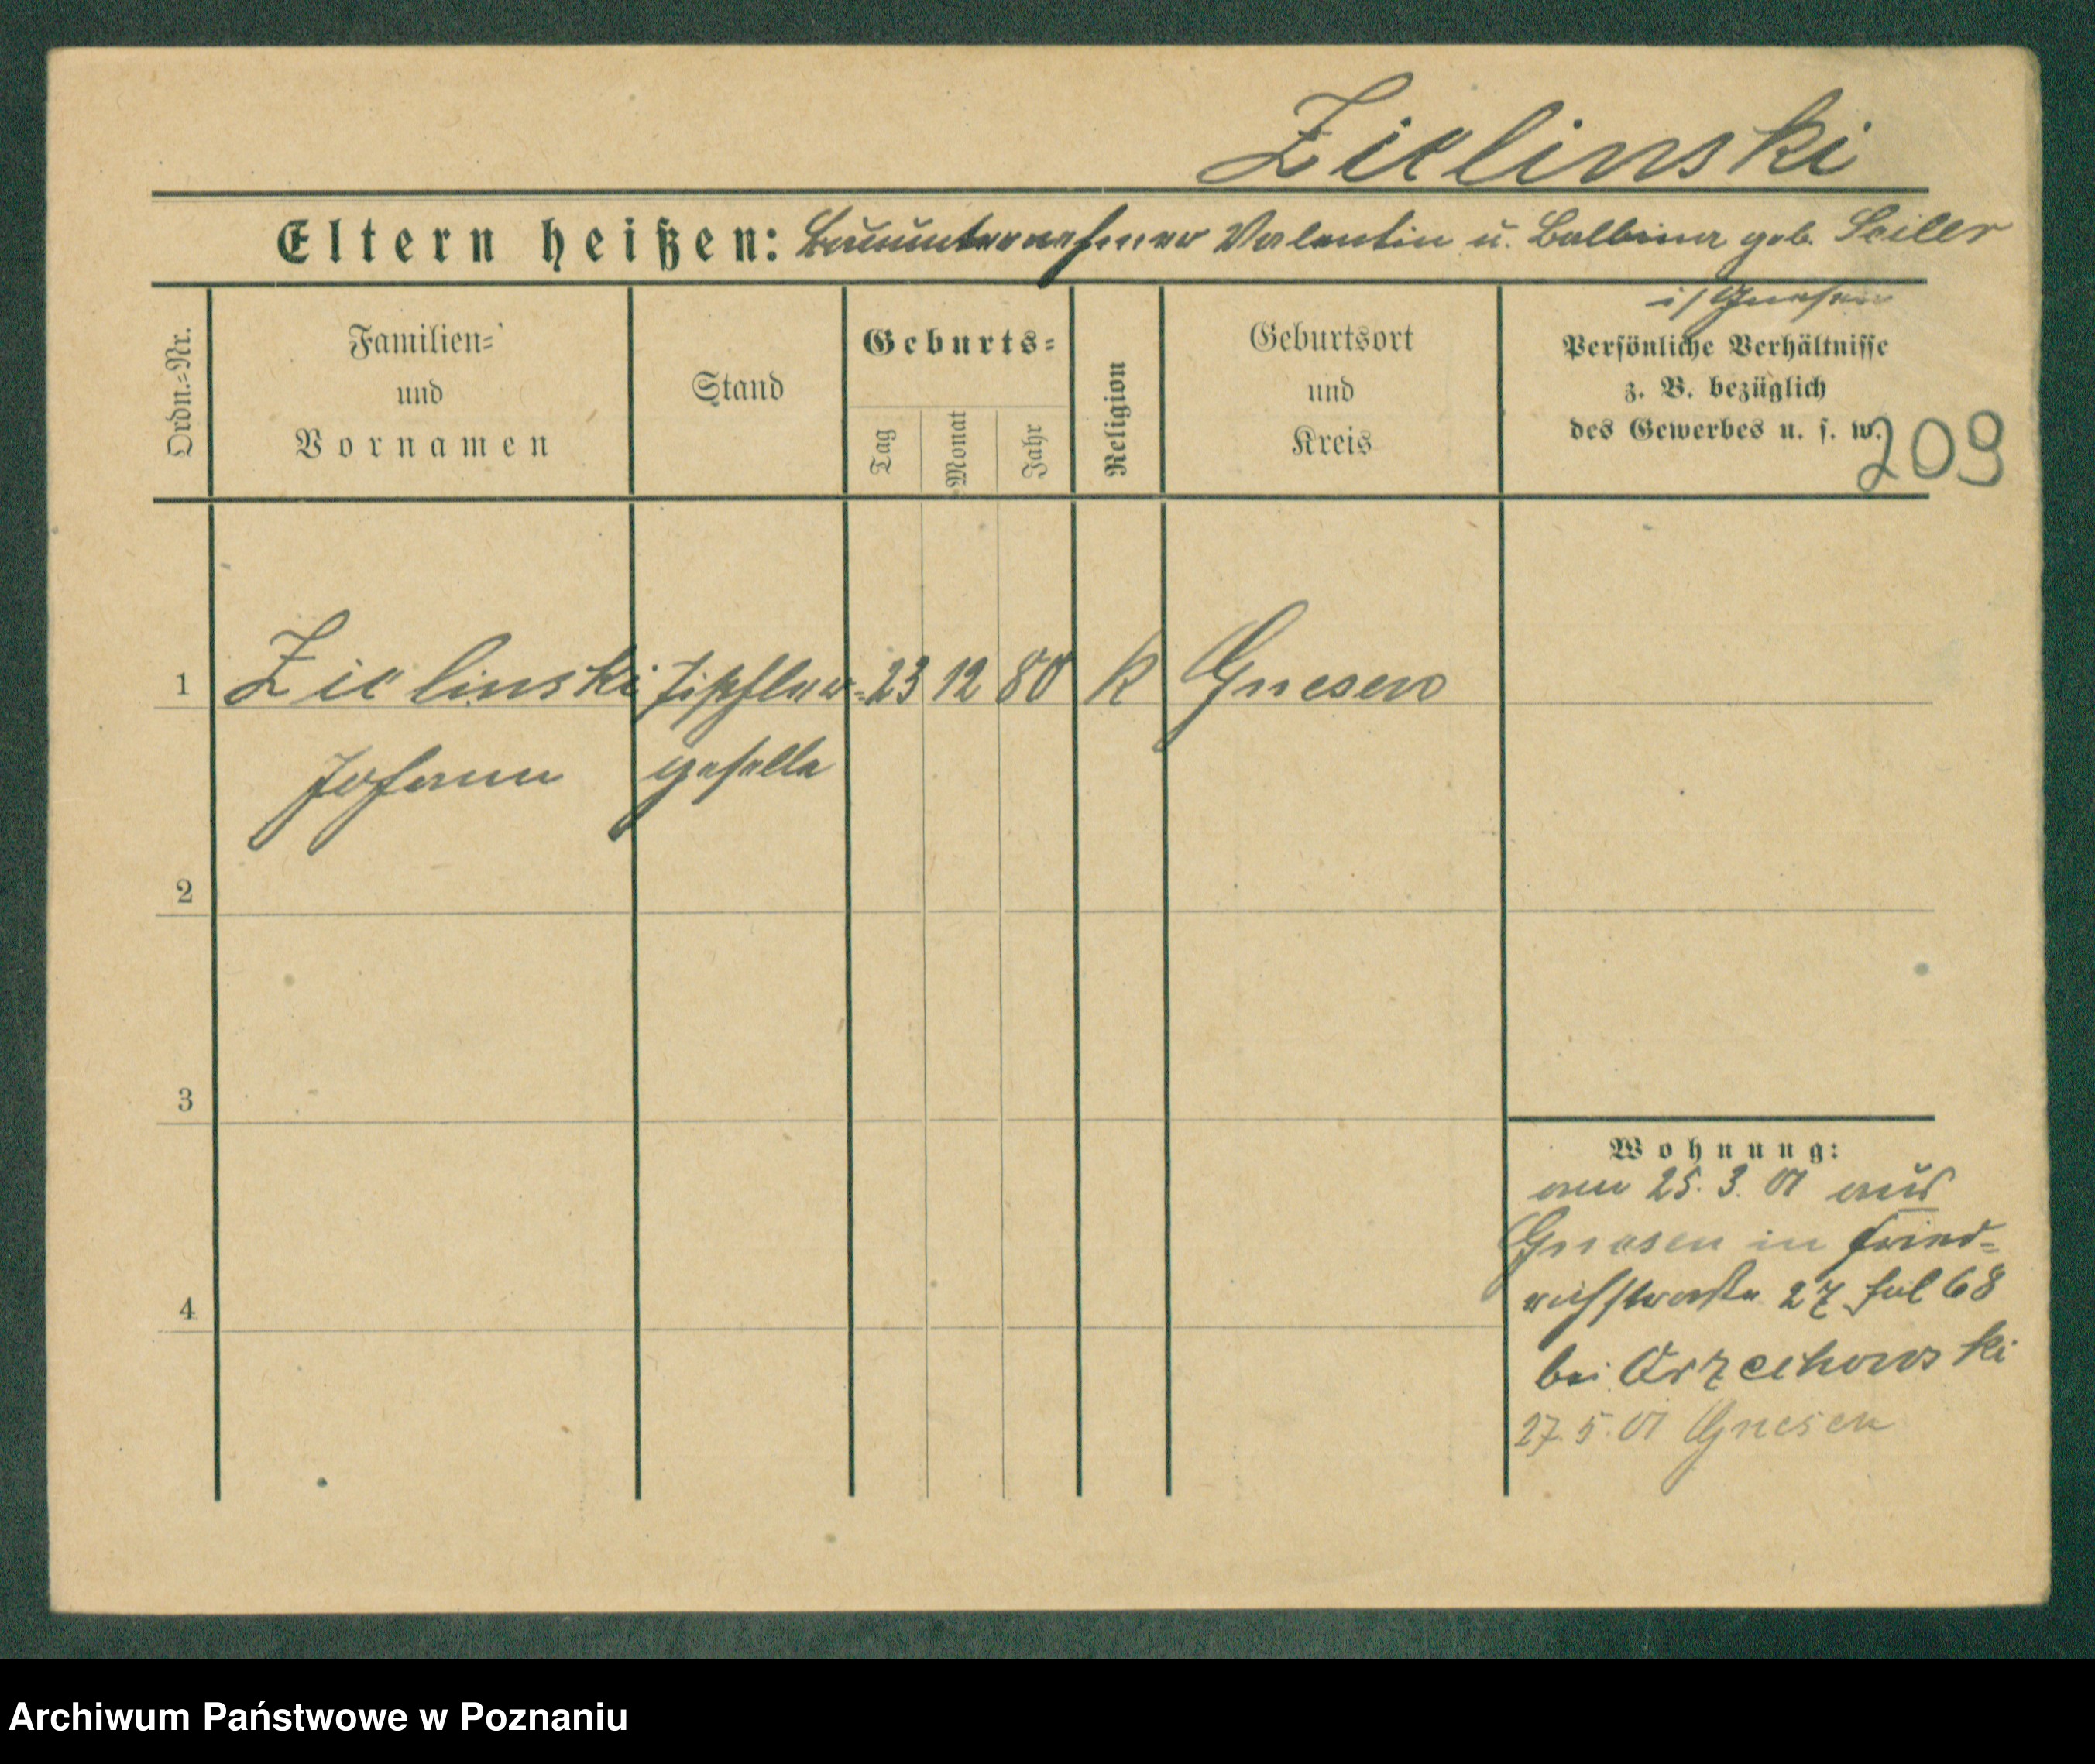 Zielinski
Eltern heißen: Bauunternehmer Valentin u. Balbina geb. Seiller
i/ Gnesen
Ordn.=Nr.
Familien=
und
Vornamen
Stand
Geburts=
Tag
Monat
Jahr
Religion
Geburtsort
und
Kreis
Persönliche Verhältnisse
z. B. bezüglich
des Gewerbes u. s. w.
209
1 Zielinski Tischler= 23 12 80 K Gnesen
Johann geselle
2
3
4
Wohnung:
am 25. 3. 01 aus
Gnesen in Fried=
richstraße 27 bei
bei Orzechowski
27. 5. 01 Gnesen
Archiwum Państwowe w Poznaniu